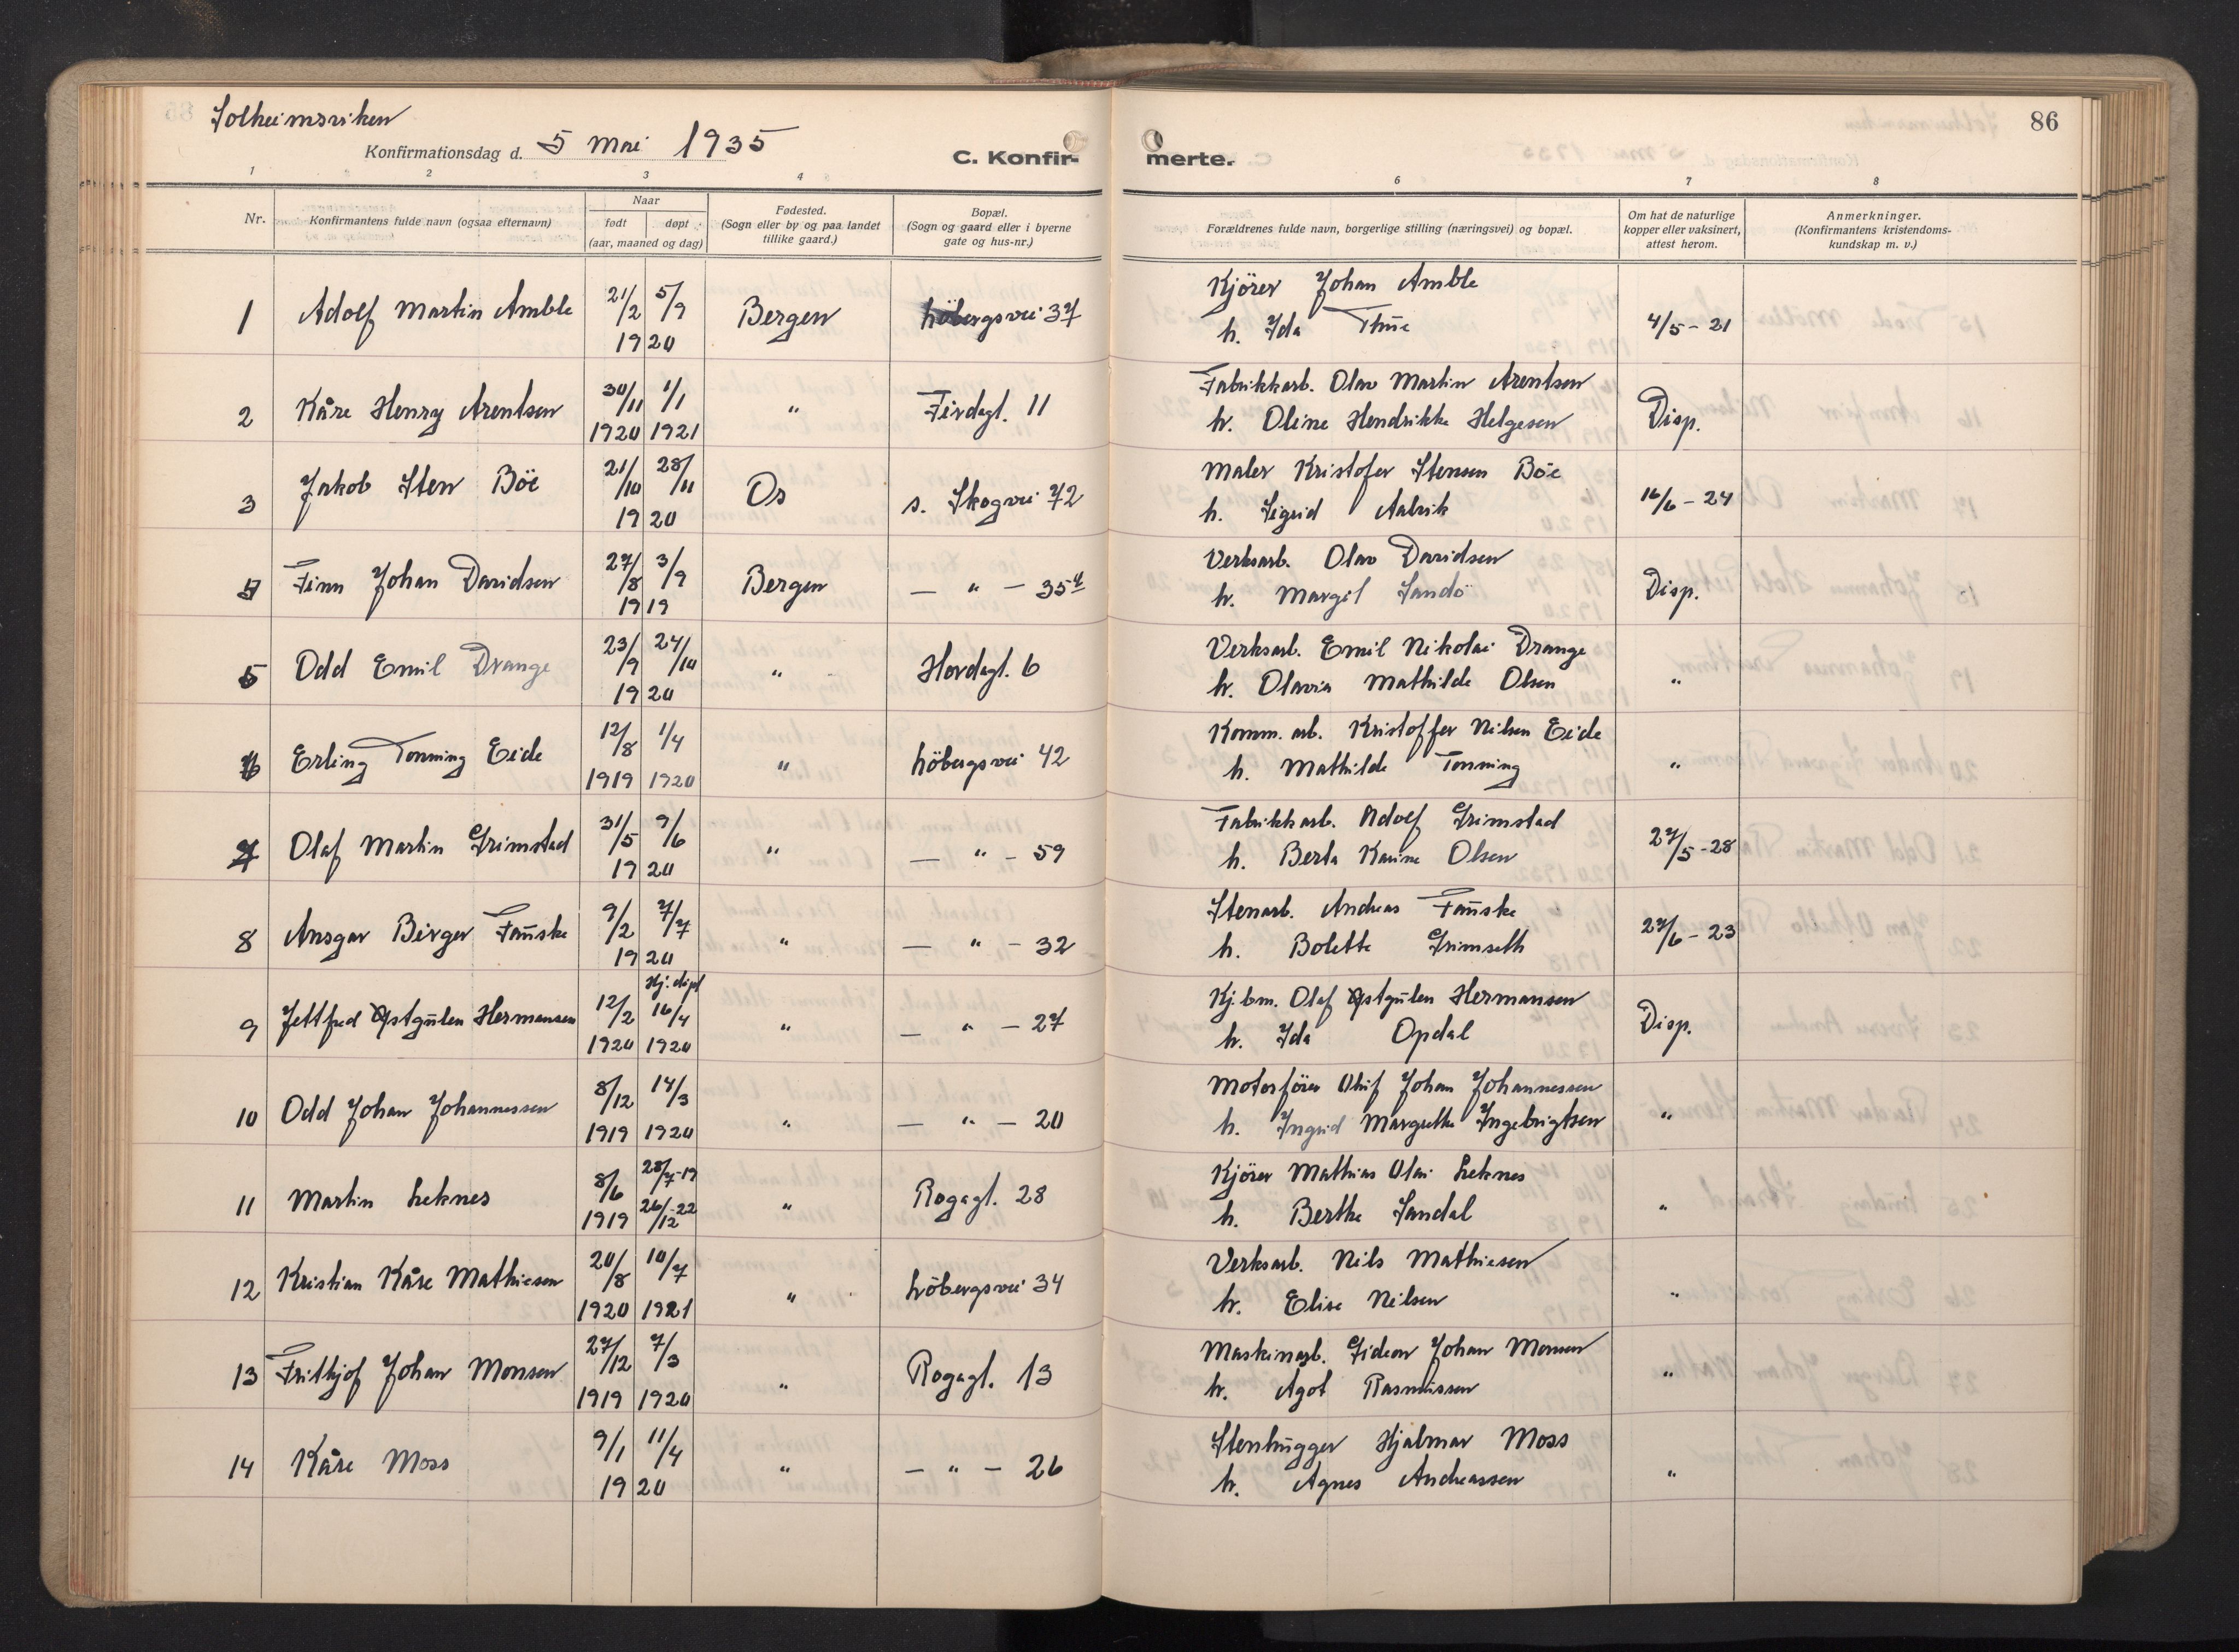 Solheimsviken
86
Konfirmationsdag d. 5 mai 1935
C. Konfirmerte.
1 2 3 4 6 7 8
Nr. Konfirmantens fulde navn (ogsaa efternavn) Naar født døpt (aar, maaned og dag) Fødested. (Sogn eller by og paa landet tillike gaard.) Bopæl. (Sogn og gaard eller i byerne gate og hus-nr.) Forældrenes fulde navn, borgerlige stilling (næringsvei) og bopæl. Om hat de naturlige kopper eller vaksinert, attest herom. Anmerkninger. (Konfirmantens kristendoms-kundskap m. v.)
1 Adolf Martin Amble 21/2 5/9 1920 Bergen Löbergsvei 37 Kjörer Johan Amble
h. Ida Thue 4/5-21
2 Kåre Henry Arentsen 30/11 1920 1/1 1921 " Firdagt. 11 Fabrikkarb. Olav Martin Arentsen
h. Oline Hendrikke Helgesen Disp.
3 Jakob Sten Böe 21/10 28/11 1920 Os s. Skogvei 72 Maler Kristofer Stensen Böe
h. Sigrid Aabrik 16/6-24
Finn Johan Davidsen 27/8 3/9 1919 Bergen — " — 35 Verksarb. Olav Davidsen
h. Margit Sandö Disp.
5 Odd Emil Drange 23/9 24/10 1920 " Hordagt. 6 Verksarb. Emil Nikolai Drange
h. Olavia Mathilde Olsen "
6 Erling Tonning Eide 12/8 1919 1/4 1920 " Löbergsvei 42 Komm. arb. Kristoffer Nilsen Eide
h. Mathilde Tonning "
7 Olaf Martin Grimstad 31/5 9/6 1920 " — " — 59 Fabrikkarb. Adolf Grimstad
h. Berta Karine Olsen 27/5-28
8 Ansgar Birger Fauske 9/2 7/7 1920 " — " — 32 Stenarb. Andreas Fauske
h. Bolette Grimseth 27/6-23
9 Jettfred Østgulen Hermansen 12/2 1920 Hj. döpt 16/4 1920 " — " — 27 Kj.bm. Olaf Østgulen Hermansen
h. Ida Opdal Disp.
10 Odd Johan Johannessen 8/12 1919 14/3 1920 " — " — 20 Motorförer Oluf Johan Johannessen
h. Ingrid Margrethe Ingebrigtsen "
11 Martin Leknes 8/6 1919 28/7-19 26/12-22 " Rogagt. 28 Kjörer Mathias Olai Leknes
h. Berthe Sandal "
12 Kristian Kåre Mathiesen 20/8 1920 10/7 1921 " Löbergsvei 34 Verksarb. Nils Mathiesen
h. Elise Nilsen "
13 Frithjof Johan Monsen 27/12 1919 7/3 1920 " Rogagt. 13 Maskinarb. Gideon Johan Monsen
h. Agot Rasmussen "
14 Kåre Moss 9/1 11/4 1920 " — " — 26 Stenhugger Hjalmar Moss
h. Agnes Andreassen "